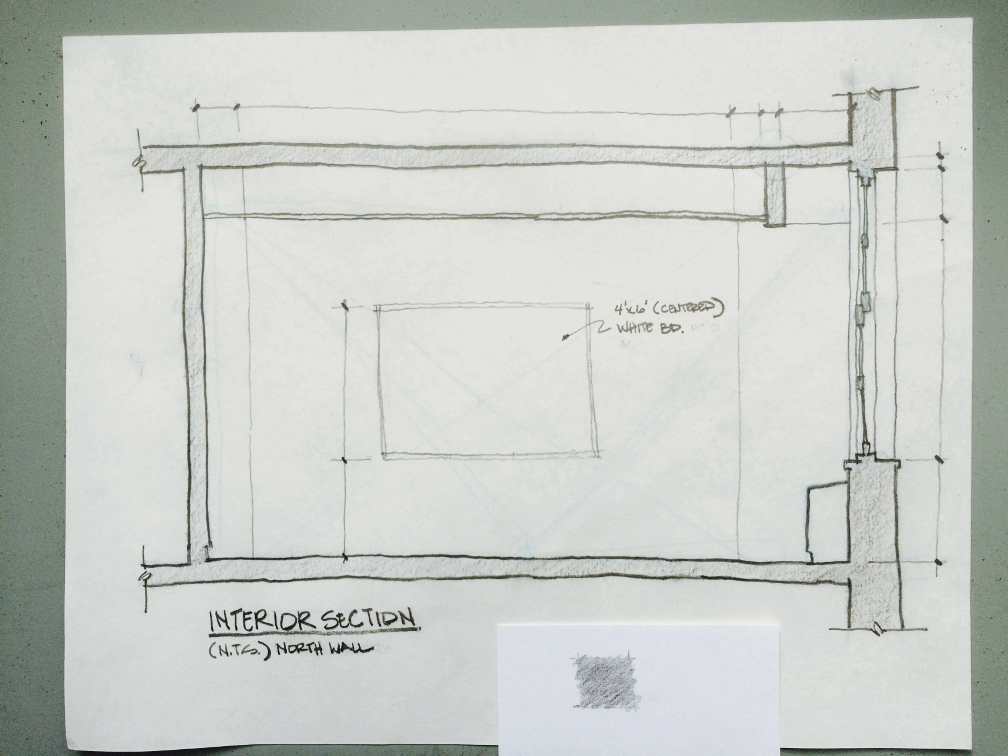 4'x6' (CENTERED)
WHITE BD.
INTERIOR SECTION
(N.T.S.) NORTH WALL